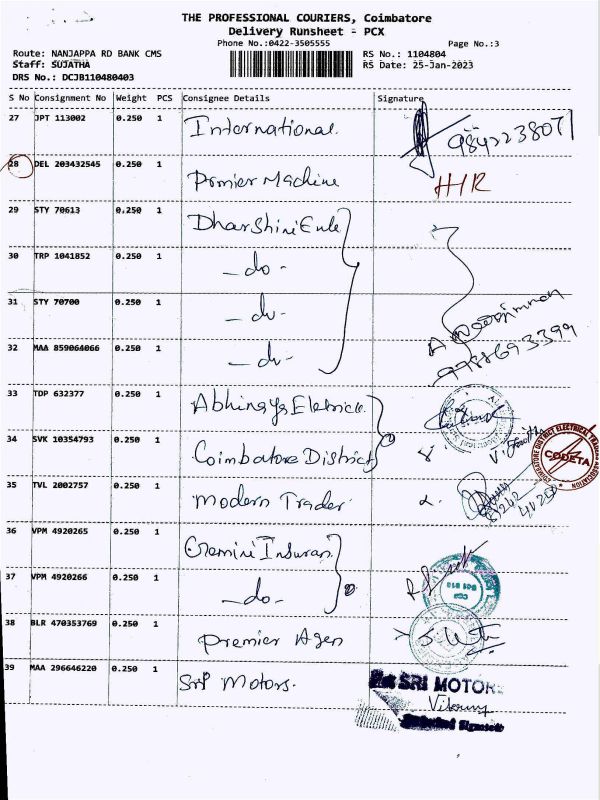 THE PROFESSIONAL COURIERS, Coimbatore
Delivery Runsheet - PCX
Phone No.:0422-3505555
Page No.:3
Route: NANJAPPA RD BANK CMS
RS No.: 1104804
Staff: SUJATHA
RS Date: 25-Jan-2023
DRS No.: DCJB110480403
S No Consignment No Weight PCS Consignee Details Signature
27 JPT 113002 0.250 1 International 9842238071
28 DEL 203432545 0.250 1 Premier Machine
29 STY 70613 0.250 1 Dharshini Ente
30 TRP 1041852 0.250 1 - do -
31 STY 70700 0.250 1 - do -
32 MAA 859064066 0.250 1 - do -
33 TDP 632377 0.250 1 Abhinaya Eletrick
34 SVK 10354793 0.250 1 Coimbatore District
CODETA
35 TVL 2002757 0.250 1 Modern Trader
36 VPM 4920265 0.250 1 Gemini Insuran
37 VPM 4920266 0.250 1 - do -
38 BLR 470353769 0.250 1 Premier Agen
39 MAA 296646220 0.250 1 Sri Motors.
SRI MOTORS